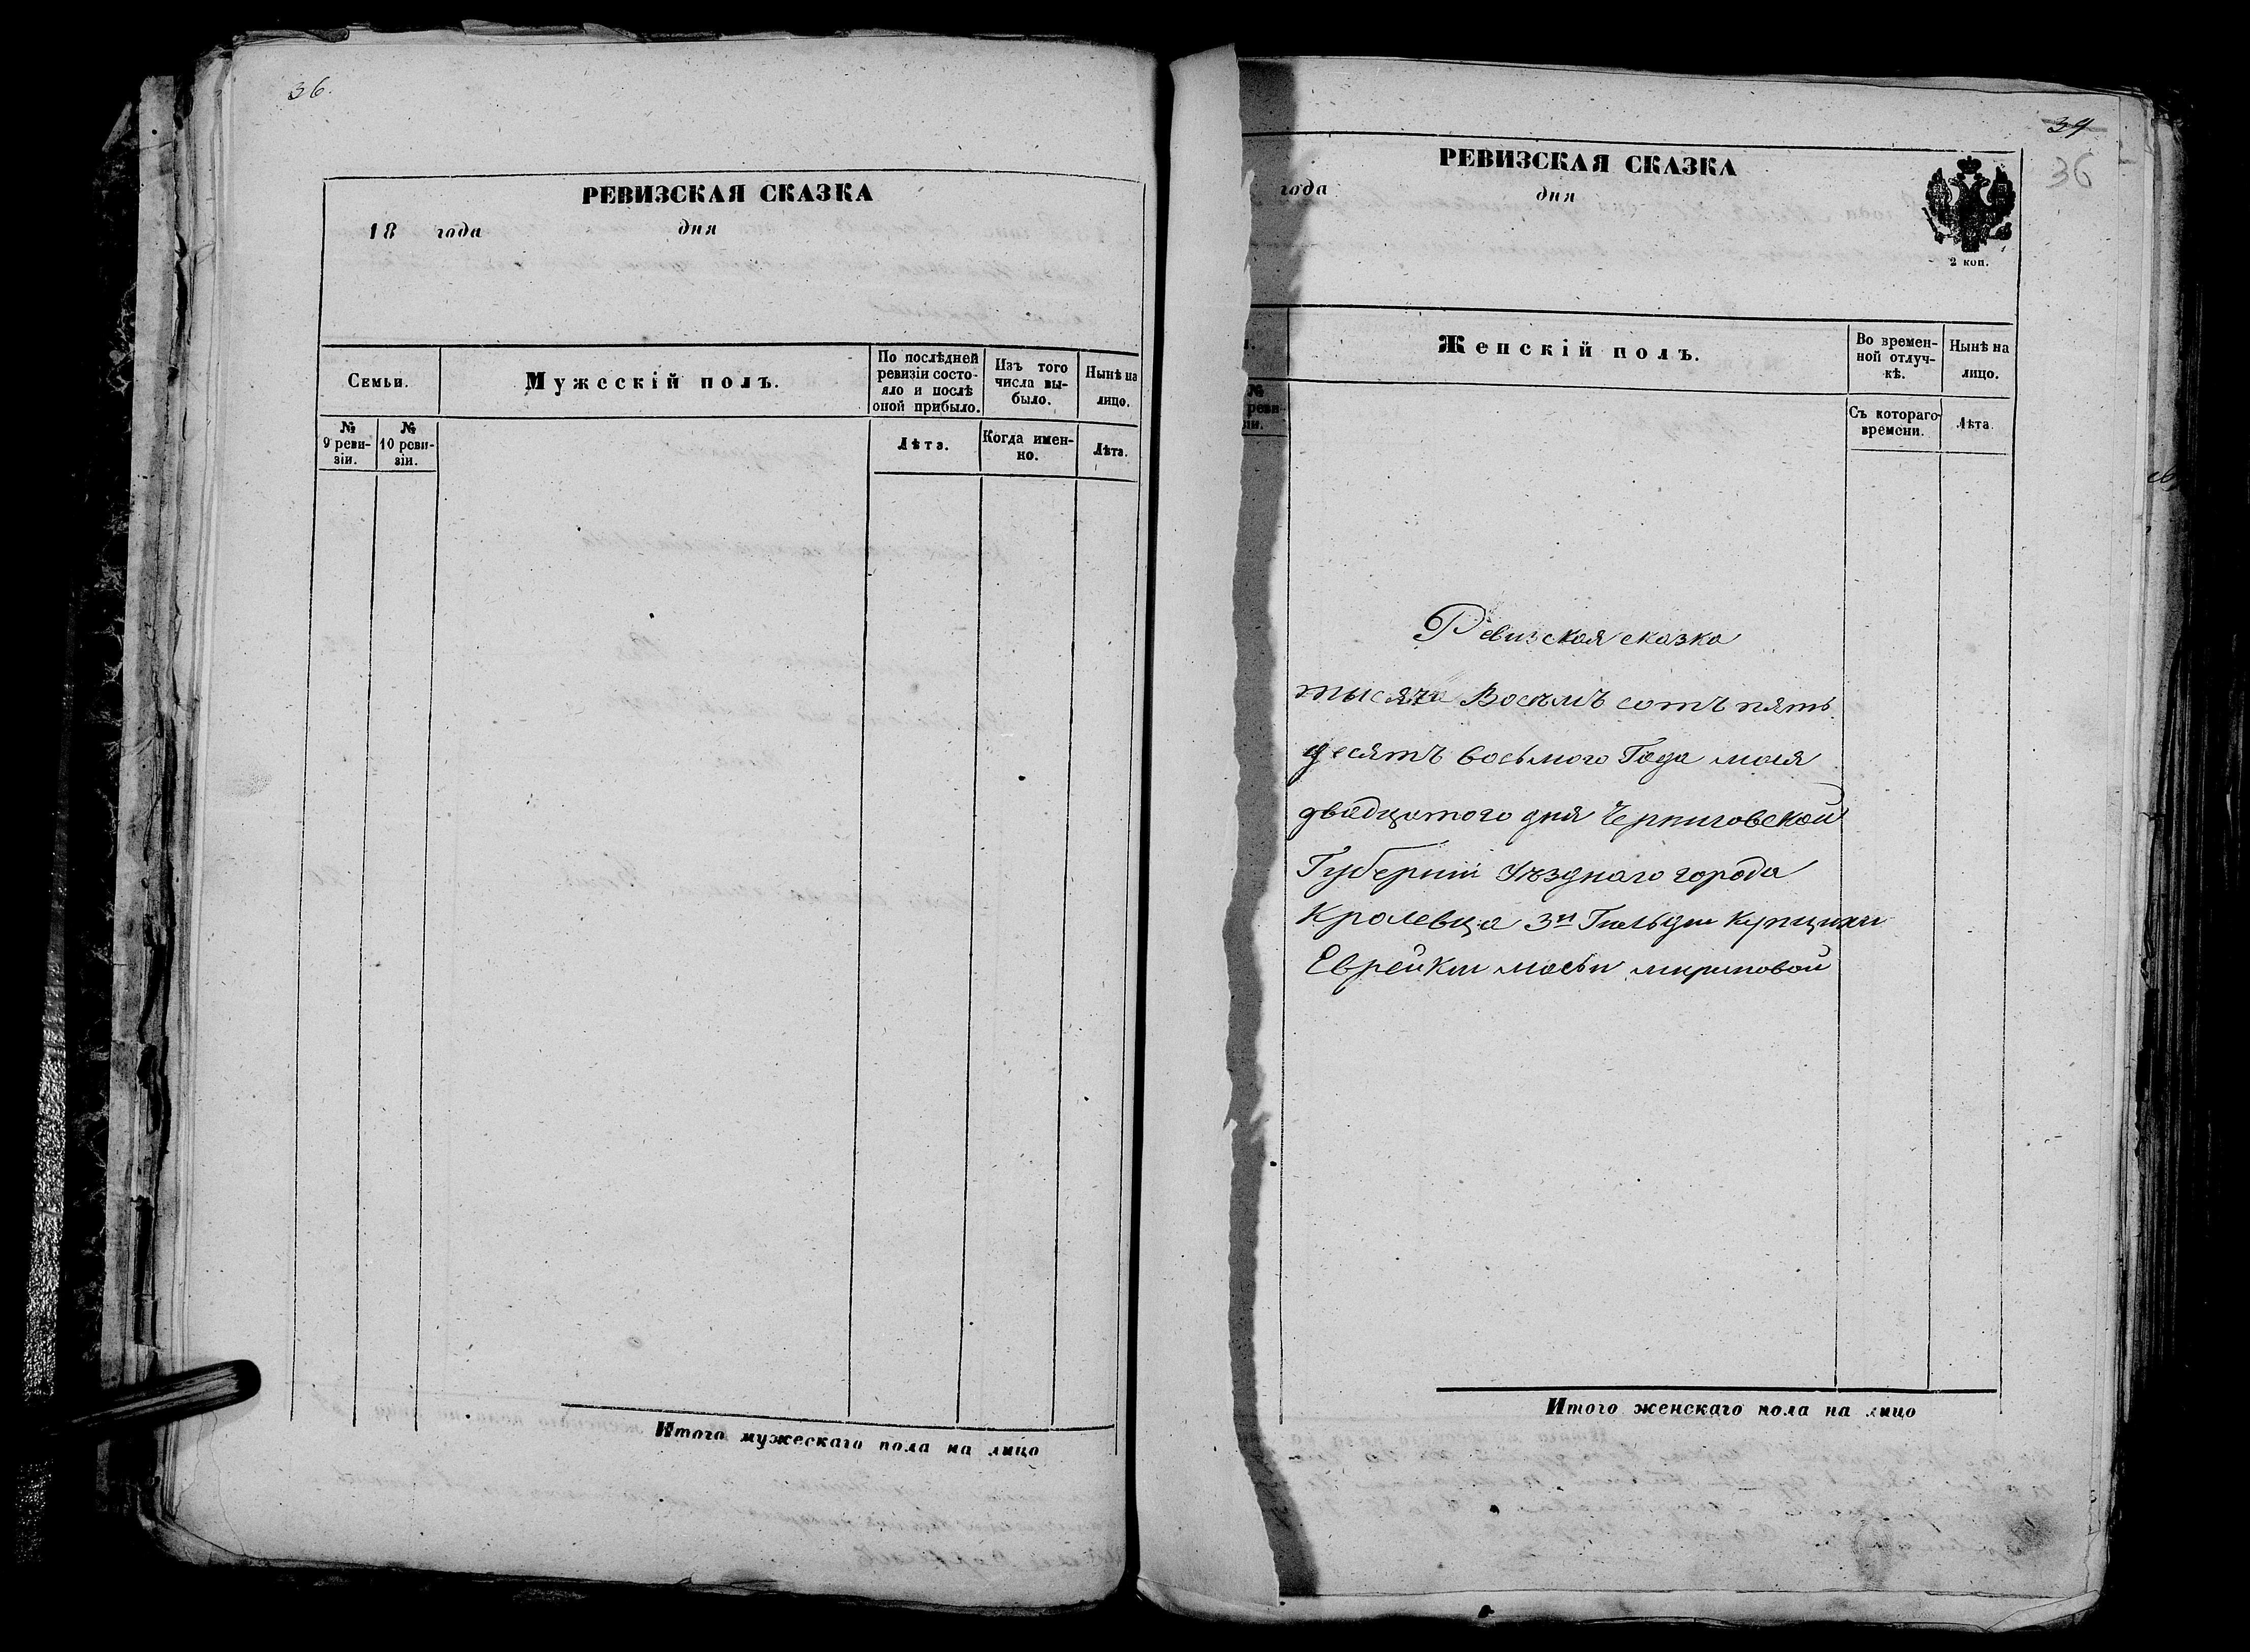 36.
РЕВИЗСКАЯ СКАЗКА
18 года дня
Семьи.
Мужескій полъ.
По послѣдней ревизіи состояло и послѣ оной прибыло.
Изъ того числа выбыло.
Нынѣ на лицо.
№ 9 ревизіи.
№ 10 ревизіи.
Лѣта.
Когда именно.
Лѣта.
Итого мужескаго пола на лицо
39
36
РЕВИЗСКАЯ СКАЗКА
года дня
2 коп.
Женскій полъ.
Во временной отлучкѣ.
Нынѣ на лицо.
№
Съ котораго времени.
Лѣта.
Ревизская сказка
тысяча Восемъ сотъ пять
десятъ восьмого Года мая
двадцатого дня Черниговской
Губерніи Уѣзднаго города
Кролевца 3й Гильдіи купчихи
Еврейки маси мириновой
Итого женскаго пола на лицо